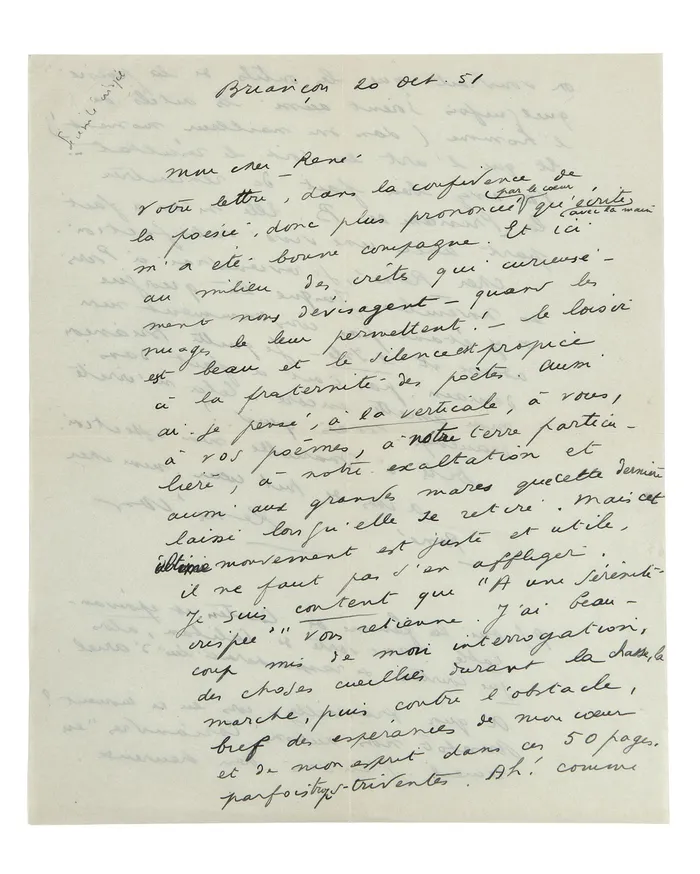 Briançon 20 Oct. 51
mon cher René
Votre lettre, dans la confidence de
par le cœur
la poésie, donc plus prononcée qu'écrite
avec la main
m'a été bonne compagne. Et ici
au milieu des crêts qui curieuse-
ment nous dévisagent – quand les
nuages le leur permettent! – le loisir
est beau et le silence est propice
à la fraternité des poètes. Aussi
ai-je pensé, à la verticale, à vous,
à vos poèmes, à notre terre particu-
lière, à notre exaltation et
aussi aux grandes mares que cette dernière
laisse lorsqu'elle se retire. Mais cet
ultime mouvement est juste et utile,
il ne faut pas s'en affliger.
Je suis content que "A une Sérénité
crispée" vous retienne. J'ai beau-
coup mis de mon interrogation,
des choses cueillies durant la chasse, la
marche, puis contre l'obstacle,
bref des espérances de mon cœur
et de mon esprit dans ces 50 pages.
parfois trop stridentes. Ah! comme